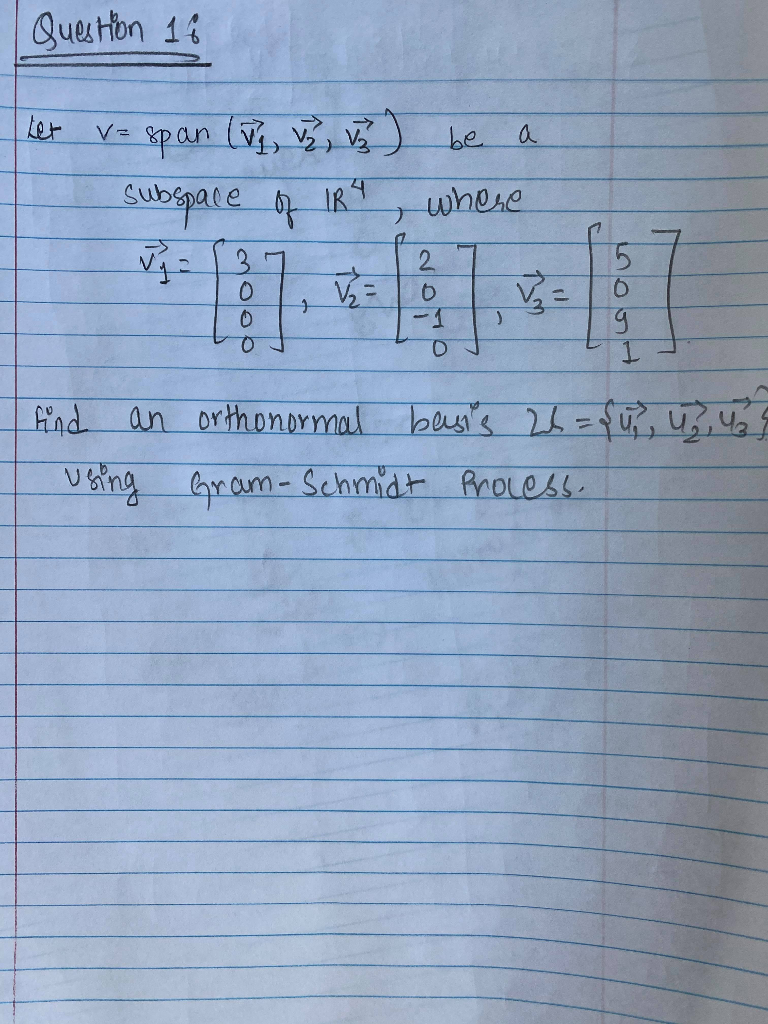 Question 16
Let V = span (v⃗1, v⃗2, v⃗3) be a
subspace of IR⁴, where
v⃗1 = [3 0 0 0], v⃗2 = [2 0 -1 0], v⃗3 = [5 0 9 1].
find an orthonormal basis U = {u⃗1, u⃗2, u⃗3}
using Gram-Schmidt Process.